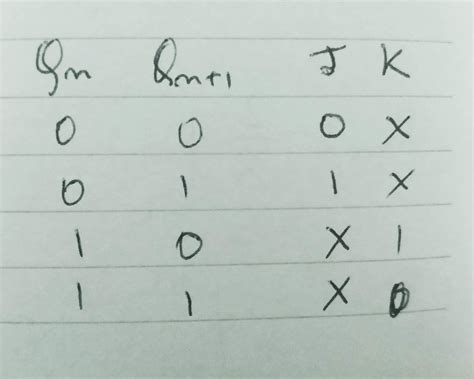 Qn Qn+1 J K
0 0 0 X
0 1 1 X
1 0 X 1
1 1 X 0